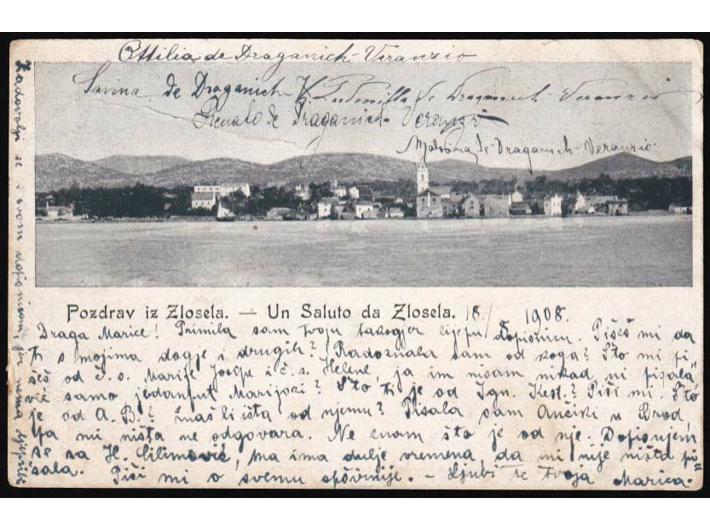 Ottilia de Draganich-Veranzio
Savina de Draganich-V. Ludmilla de Draganich Veranzio
Renato de Draganich-Veranzio
Malvina de Draganich-Veranzio
Pozdrav iz Zlosela. — Un Saluto da Zlosela. 18/ 1908.
Draga Marice! Primila sam tvoju takogjer lijepu dopisnicu. Pišeš mi da
ti s mojima dogje i drugih? Radoznala sam od koga? Što mi pi
šeš od č. s. Marije Josipe i č. s. Helene, ja im nisam nikad ni pisala
već samo jedanput Marijozi? Što ti je od Ign. Kest.? Piši mi. Što
je od A. B.? Znaš li išta od njemu? Pisala sam Ančiki u Brod,
pa mi ništa ne odgovara. Ne znam što je od nje. Dopisujem
se sa H. Cilimović, ma ima dulje vremena, da mi nije ništa pi
sala. Piši mi o svemu opširnije. - Ljubi te tvoja Marica.
Zadovolji se i s ovom dopisnicom, jer nema ljepših